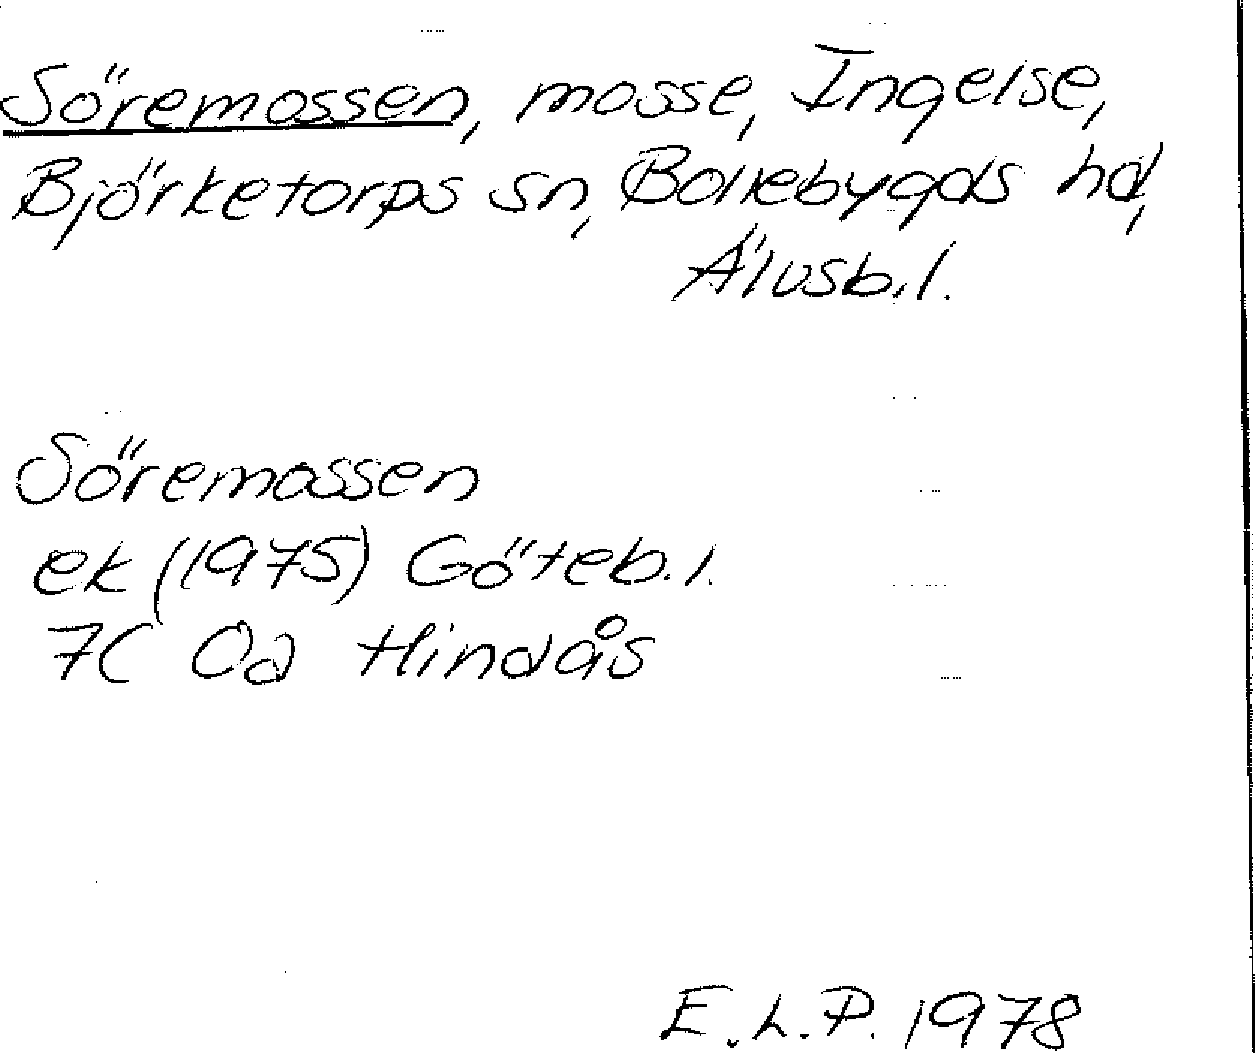 Söremossen, mosse, Ingelse,
Björketorps sn, Bollebygds hd,
Älvsb.l.
Söremossen
ek (1975) Göteb.l.
7C 0a Hindås
E.L.P. 1978